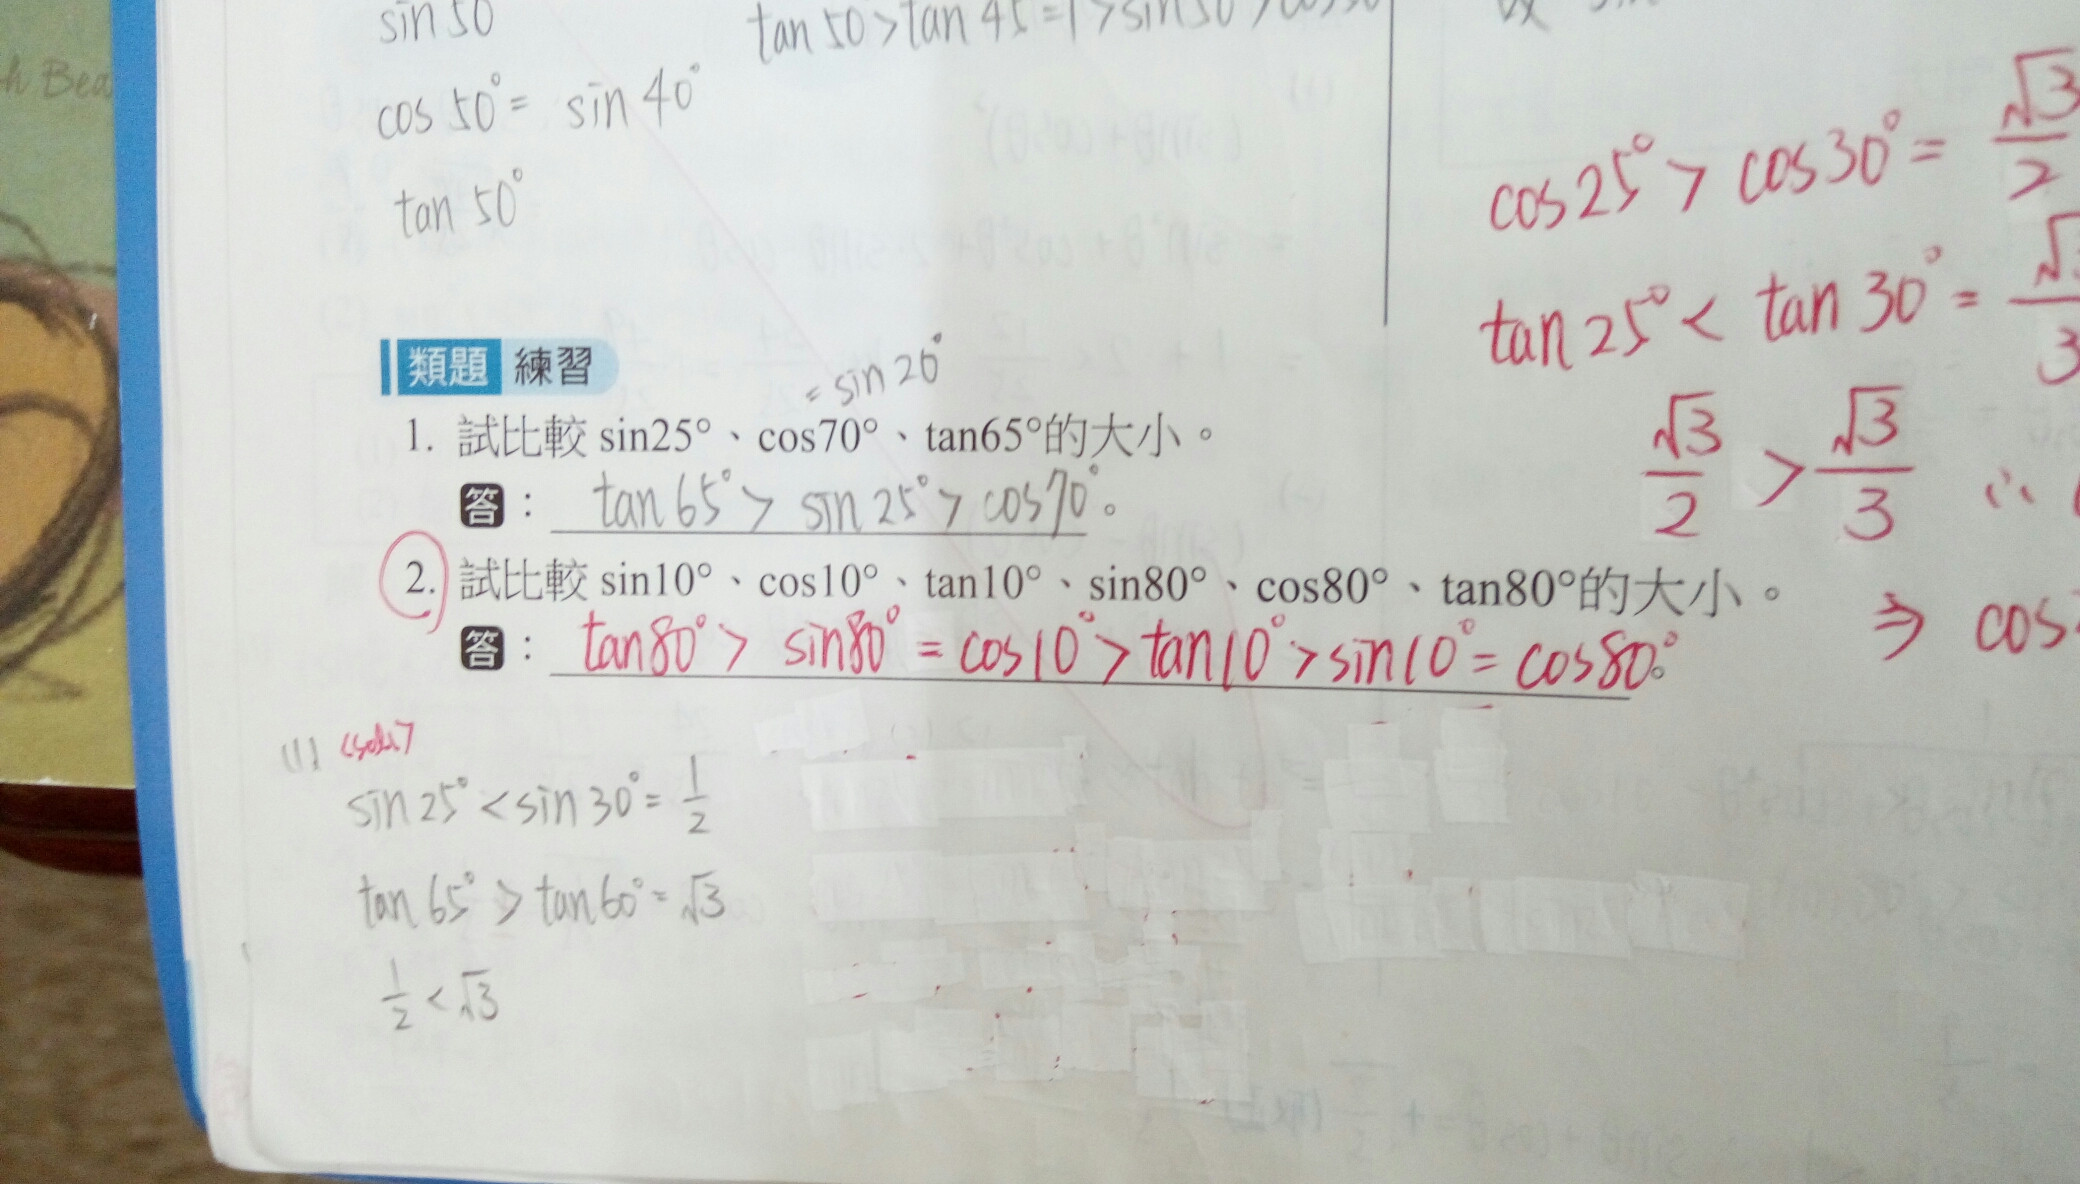 sin 50
tan 50 > tan 45 = 1 > sin 50 >
cos 50° = sin 40°
tan 50°
cos 25° > cos 30° = √3/2
tan 25° < tan 30° = √3/3
√3/2 > √3/3 ∴
⇒ cos
類題 練習
= sin 20°
1. 試比較 sin25°、cos70°、tan65°的大小。
答： tan 65° > sin 25° > cos 70°。
2. 試比較 sin10°、cos10°、tan10°、sin80°、cos80°、tan80°的大小。
答： tan 80° > sin 80° = cos 10° > tan 10° > sin 10° = cos 80°。
(1) <sol>
sin 25° < sin 30° = 1/2
tan 65° > tan 60° = √3
1/2 < √3